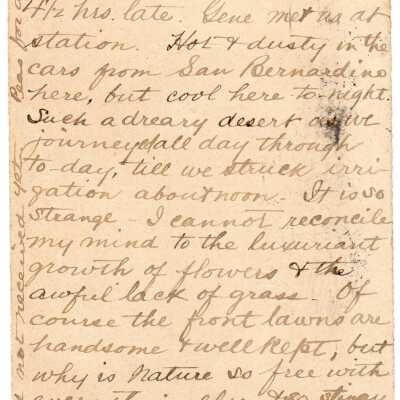 4½ hrs. late. Gene met us at
station. Hot & dusty in the
cars from San Bernardino
here, but cool here to-night.
Such a dreary desert as we
journeyed all day through
to-day, till we struck irri-
gation about noon. It is so
strange - I cannot reconcile
my mind to the luxuriant
growth of flowers & the
awful lack of grass. Of
course the front lawns are
handsome & well kept, but
why is Nature so free with
& so stingy
not received yet